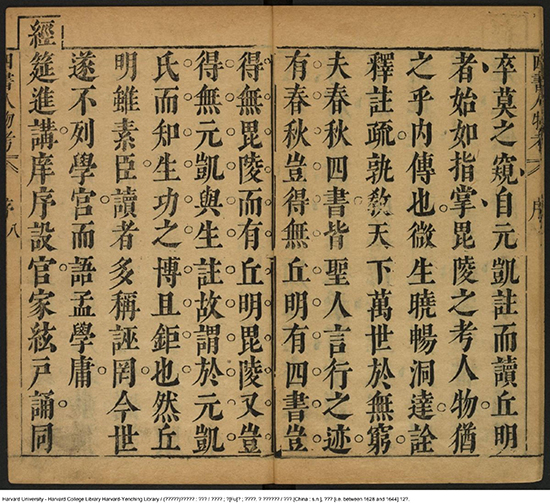 四書人物考 序
卒莫之窺自元凱註而讀丘明
者始如指掌毘陵之考人物猶
之乎內傳也微生曉暢洞達詮
釋註疏孰敎天下萬世於無窮
夫春秋四書皆聖人言行之迹
有春秋豈得無丘明有四書豈
得無毘陵而有丘明毘陵又豈
得無元凱與生註故謂於元凱
氏而知生功之博且鉅也然丘
明雖素臣讀者多稱誣罔今世
遂不列學官而語孟學庸
經筵進講庠序設官家絃戶誦同
四書人物考 序 八
Harvard University - Harvard College Library Harvard-Yenching Library / (??????)????? : ??? / ???? ; ?[Fu]? ; ????. ? ?????? / ??? [China : s.n.], ??? [i.e. between 1628 and 1644] 12?.